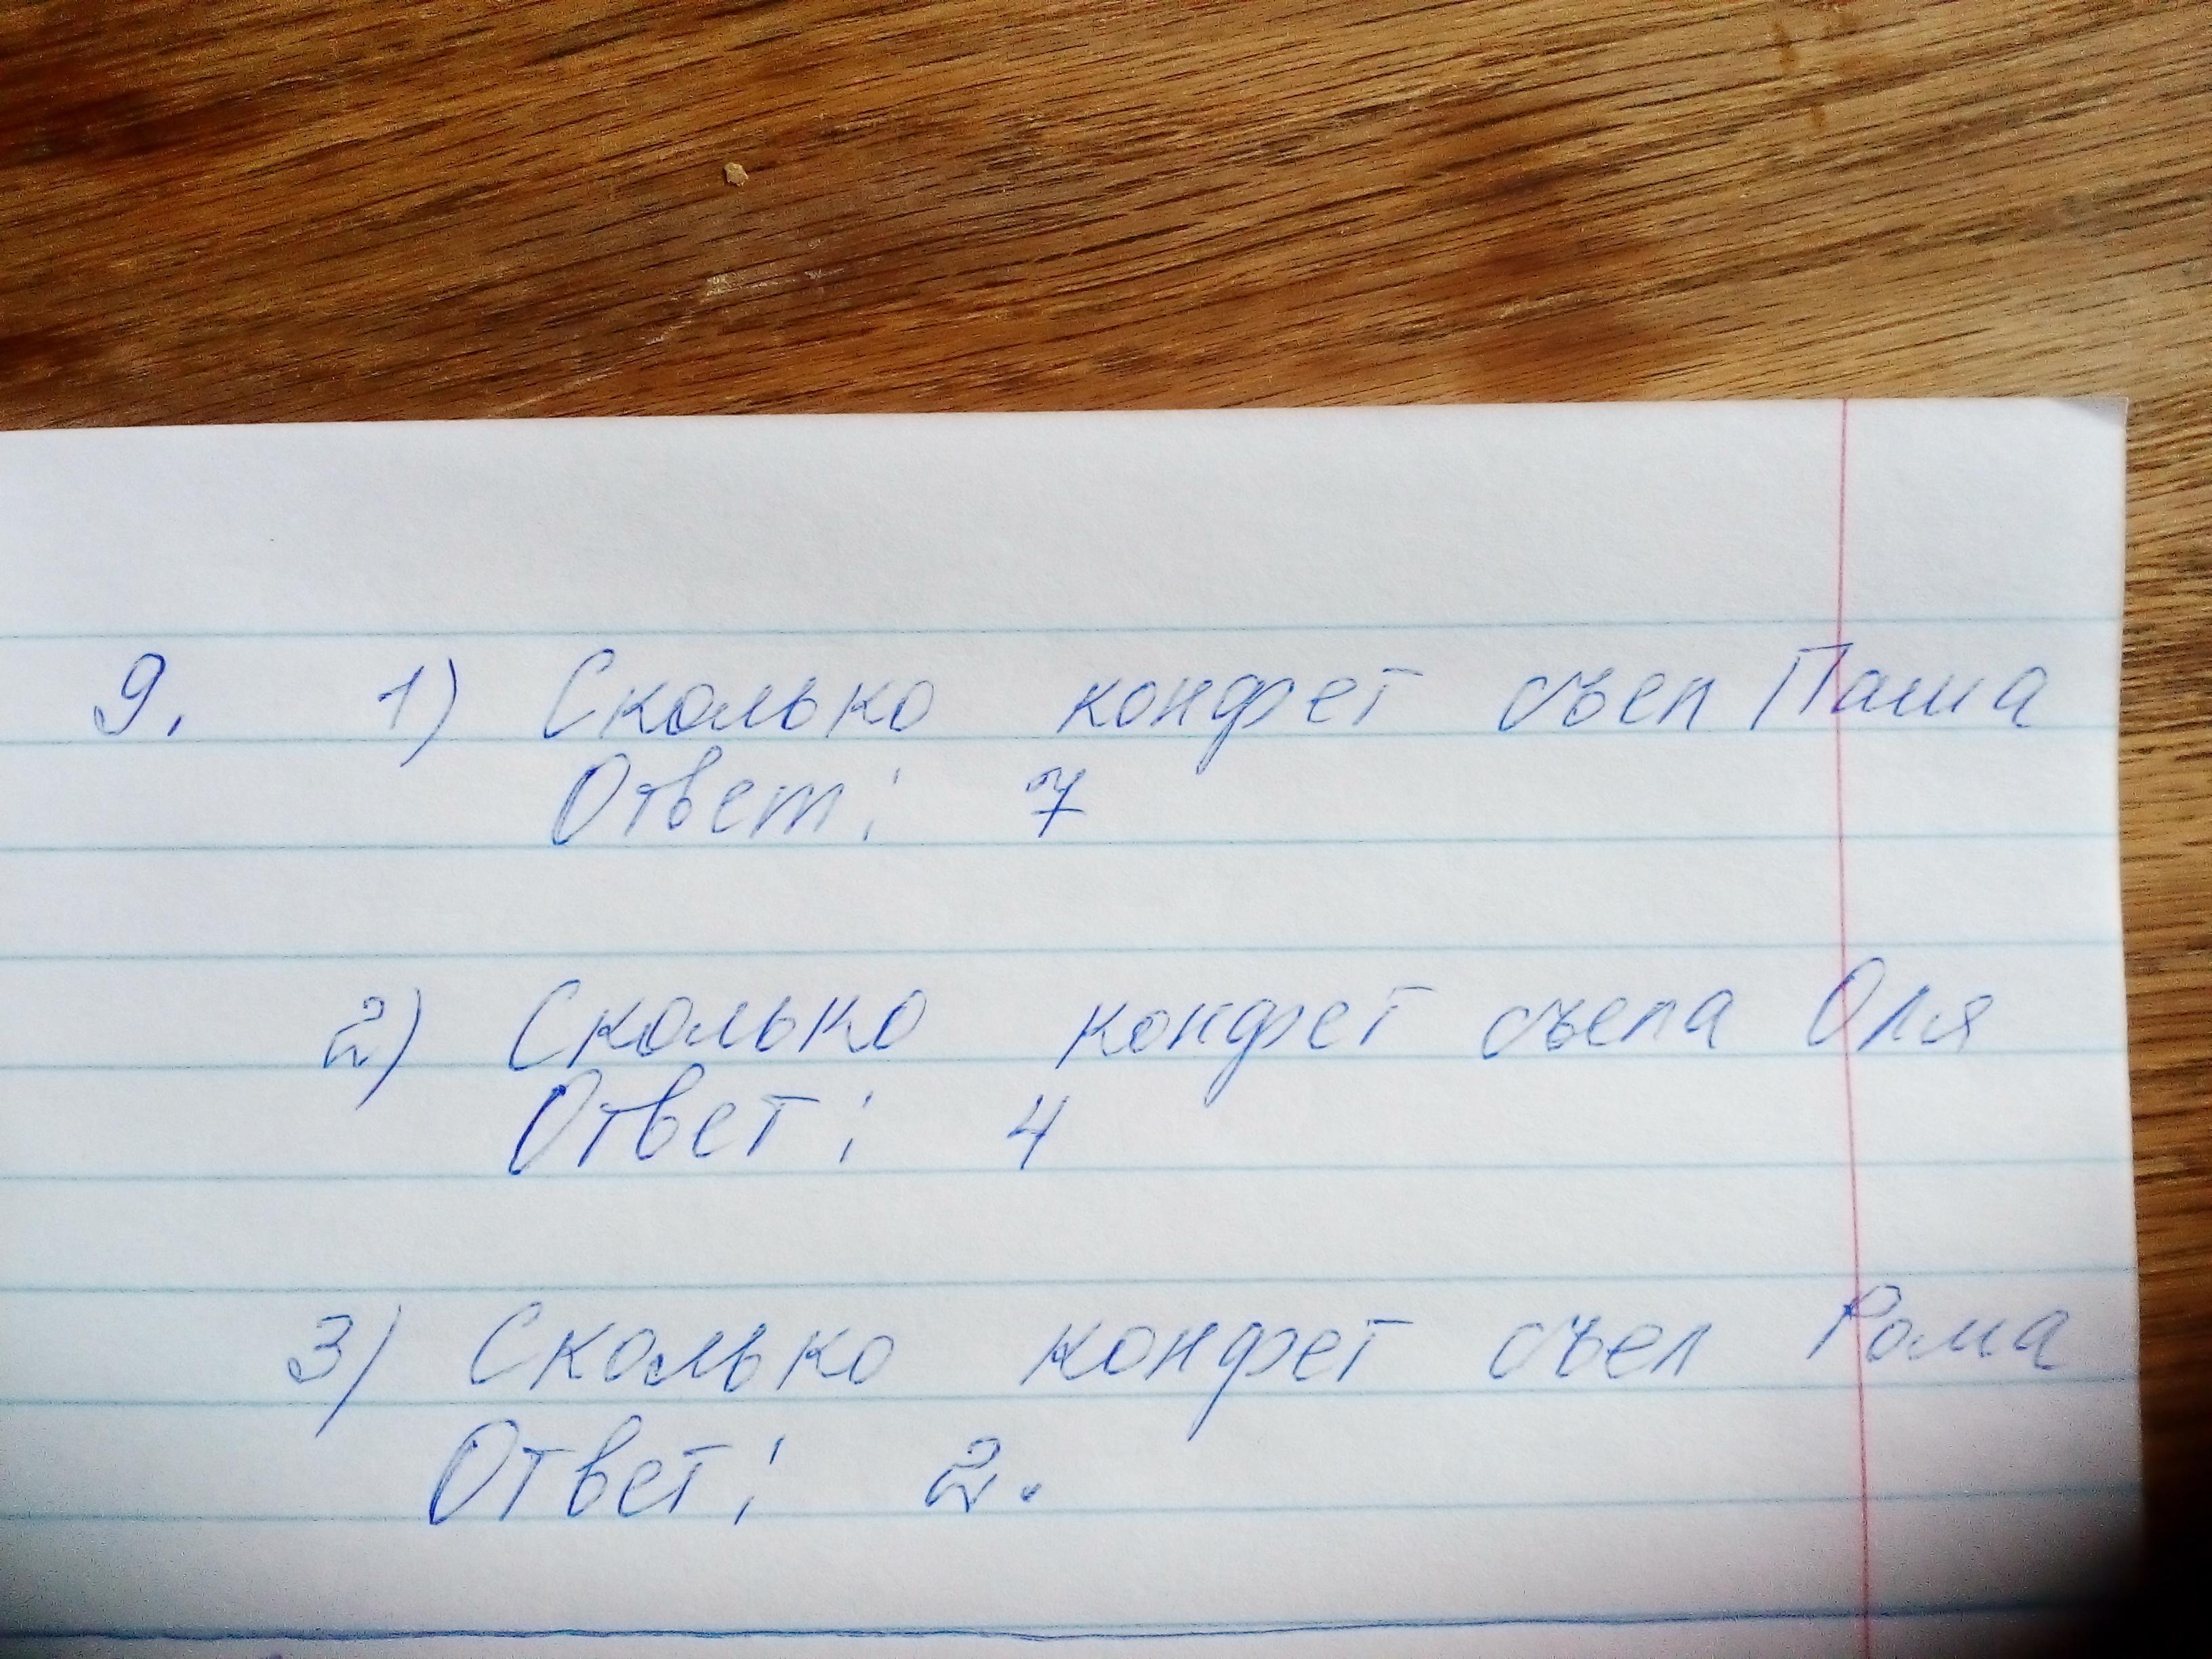 9. 1) Сколько конфет съел Паша
Ответ: 7
2) Сколько конфет съела Оля
Ответ: 4
3) Сколько конфет съел Рома
Ответ: 2.